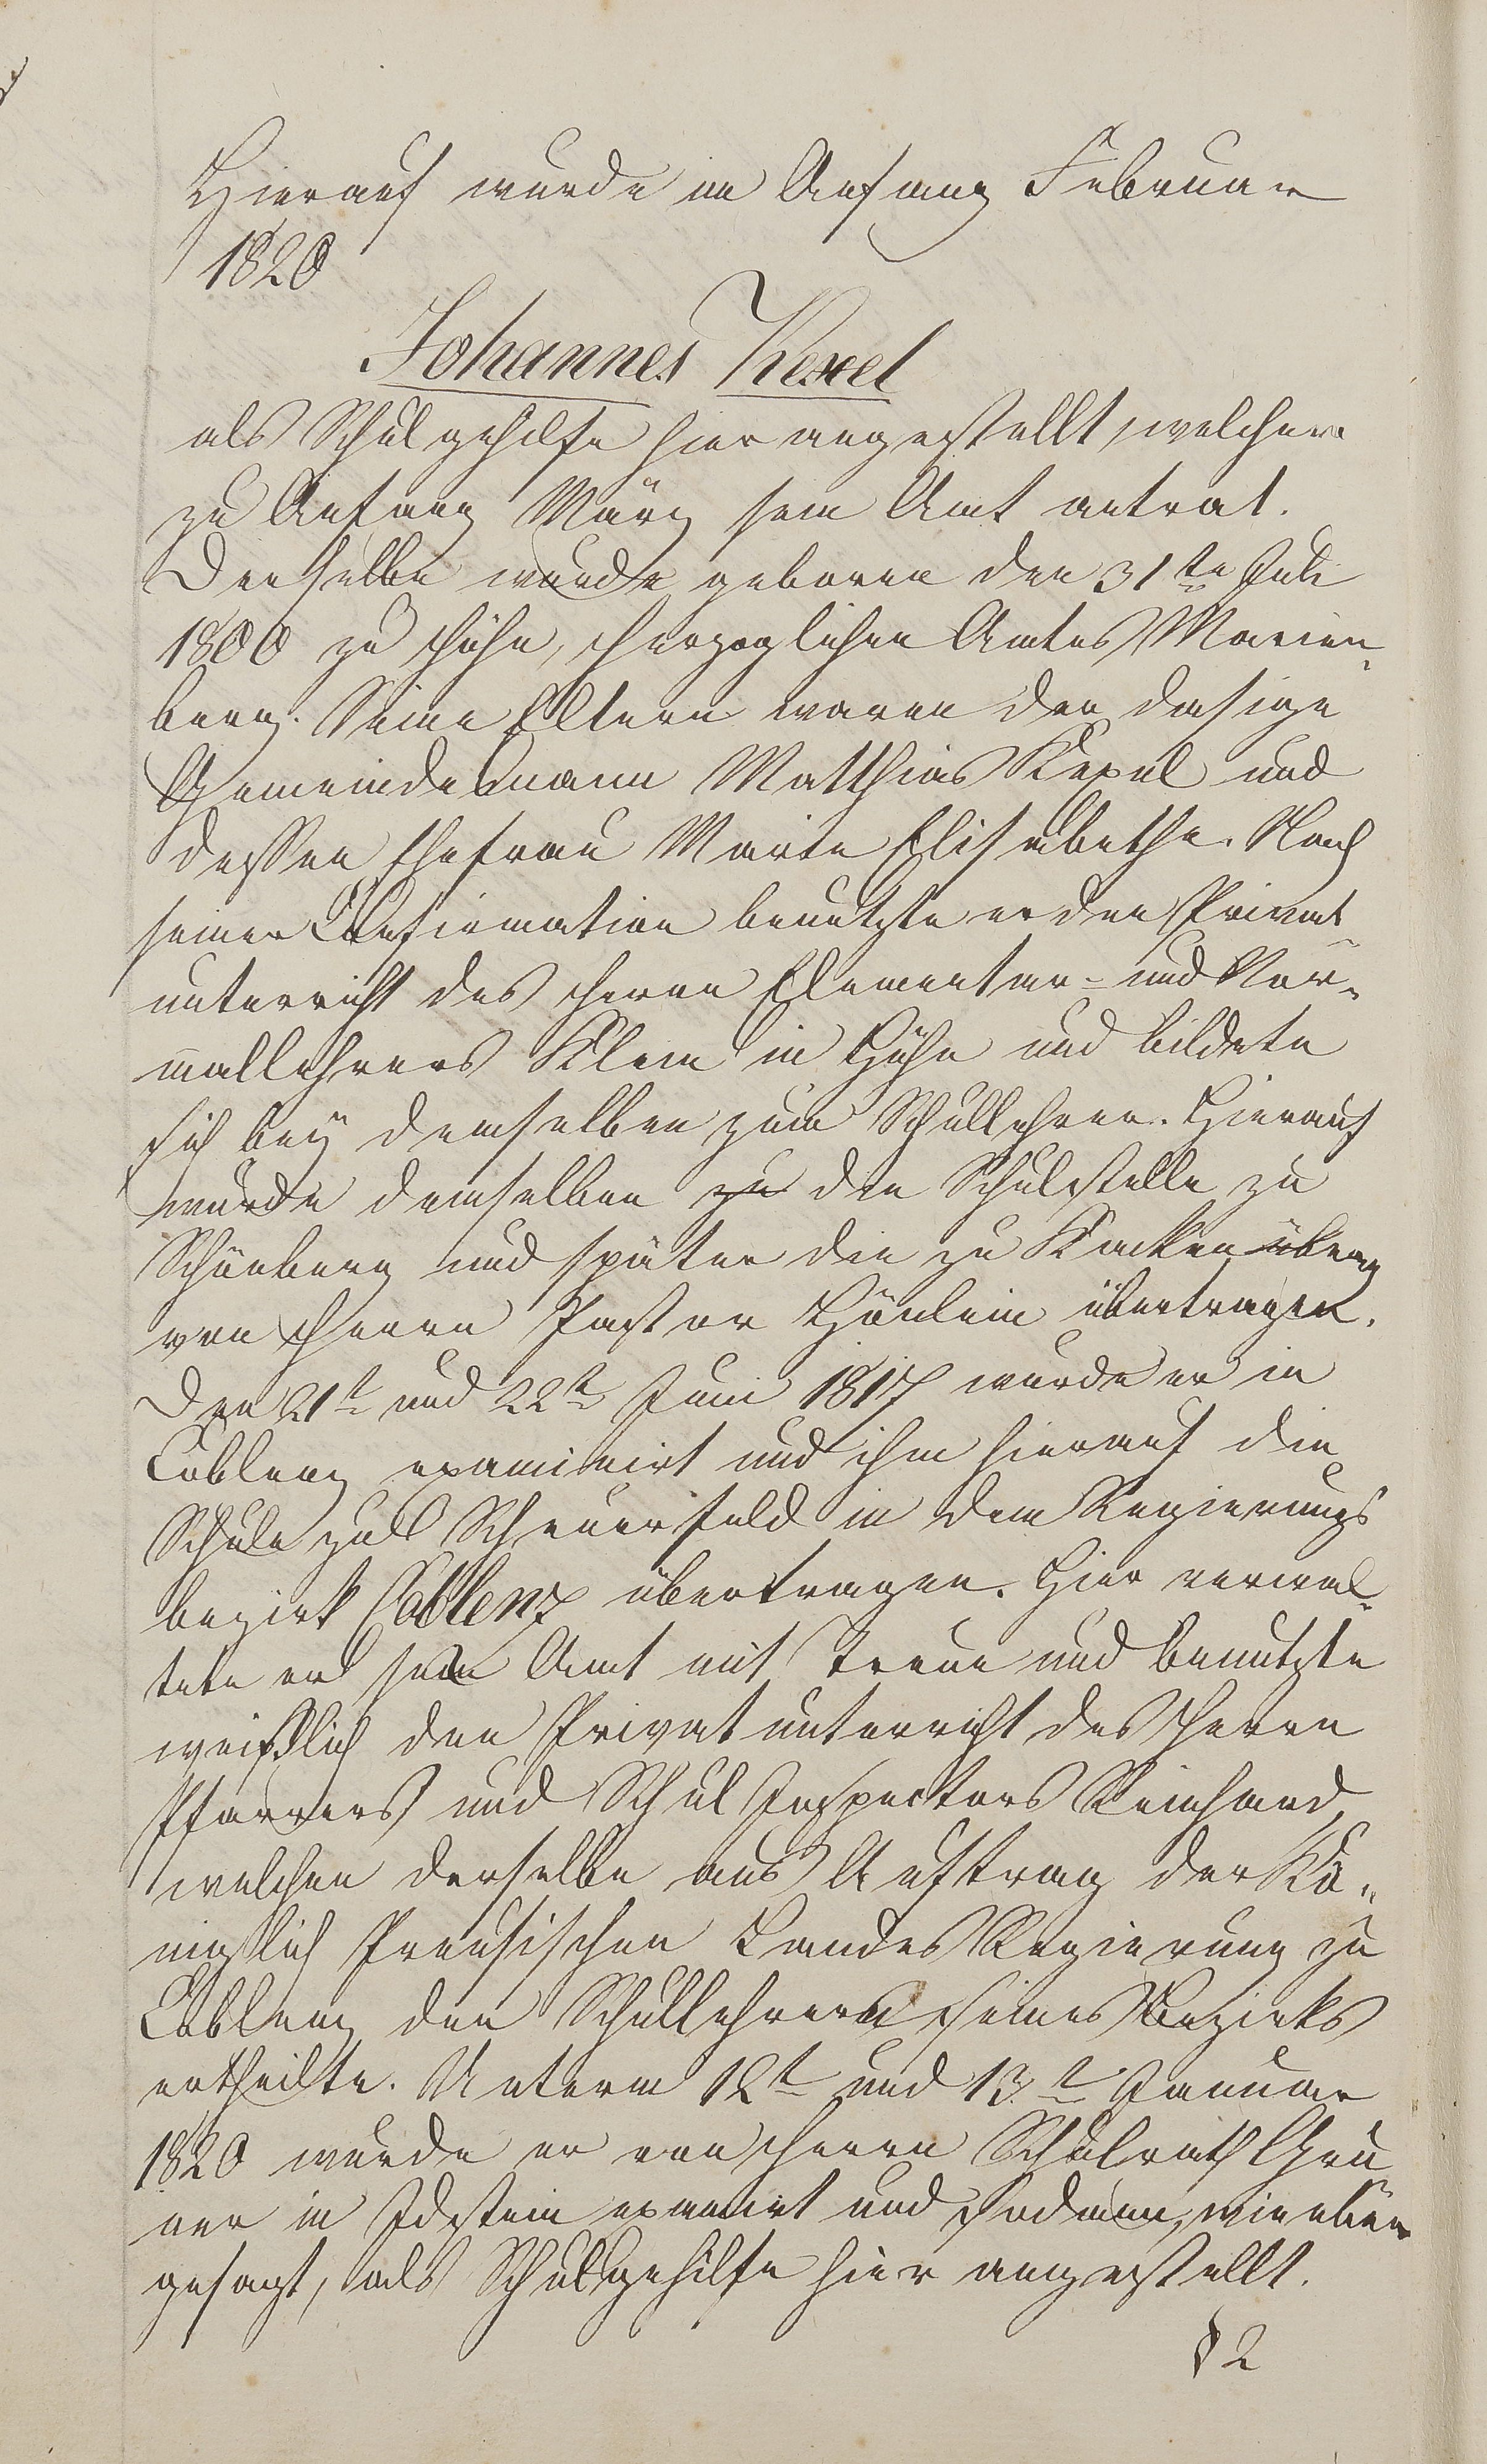 Hierauf wurde im Anfang Februar
1820
Johannes Kexel
als Schulgehilfe hier angestellt, welcher
zu Anfang März sein Amt antrat.
Derselbe wurde geboren den 31ten Juli
1800 zu Höhn, Herzoglichen Amtes Marien-
berg. Seine Eltern waren der dasige
Gemeindsmann Matthias Kexel und
dessen Ehefrau Marie Elisabethe. Nach
seiner Confirmation benutzte er den Privat
unterricht des Herrn Elementar- und Nor-
mallehrers Klein in Höhn und bildete
sich bey demselben zum Schullehrer. Hierauf
wurde demselben zu die Schulstelle zu
Schönberg und später die zu Kacken übrag
von Herrn Pastor Hönlein übertragen.
Den 21t und 22t Juni 1817 wurde er in
Coblenz examinirt und ihm hierauf die
Schule zu Scheuerfeld in dem Regierungs
bezirk Coblenz übertragen. Hier verwal-
tete er sein Amt mit Treue und benutzte
weißlich den Privatunterricht des Herrn
Pfarrers und Schul Inspectors Reinhard,
welchen derselbe aus Auftrag der Kö-
niglich Preusischen Landes Regierung zu
Coblenz den Schullehrern seines Bezirks
ertheilte. Unterm 12t und 13t Januar
1820 wurde er von Herrn Schulrath Gru
ner in Idstein examinirt und sodann, wie oben
gesagt, als Schulgehilfe hier angestellt.
§ 2